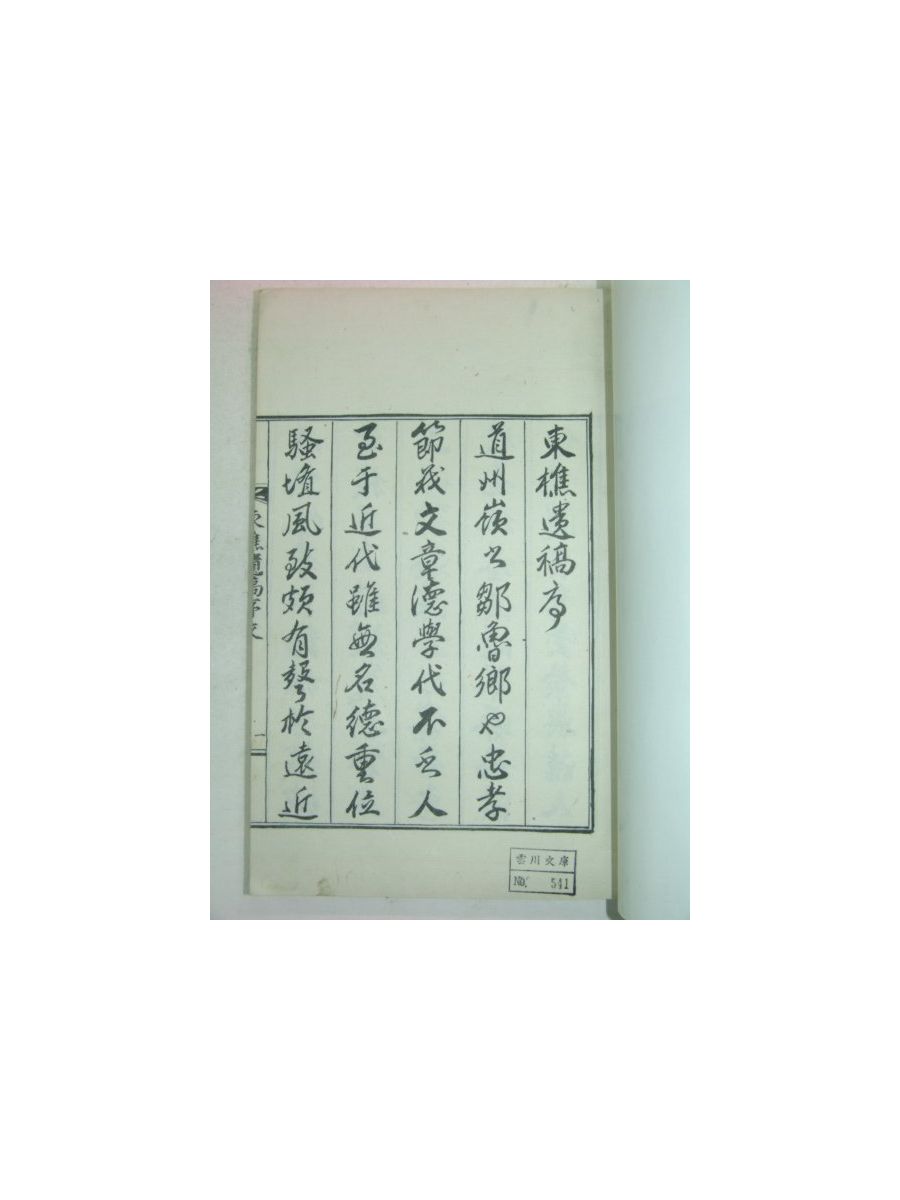 東樵遺稿序
道州嶺之鄒魯鄉也忠孝
節義文章德學代不乏人
至于近代雖無名德重位
騷壇風致頗有聲於遠近
東樵遺稿序文
一
雲川文庫
No. 541